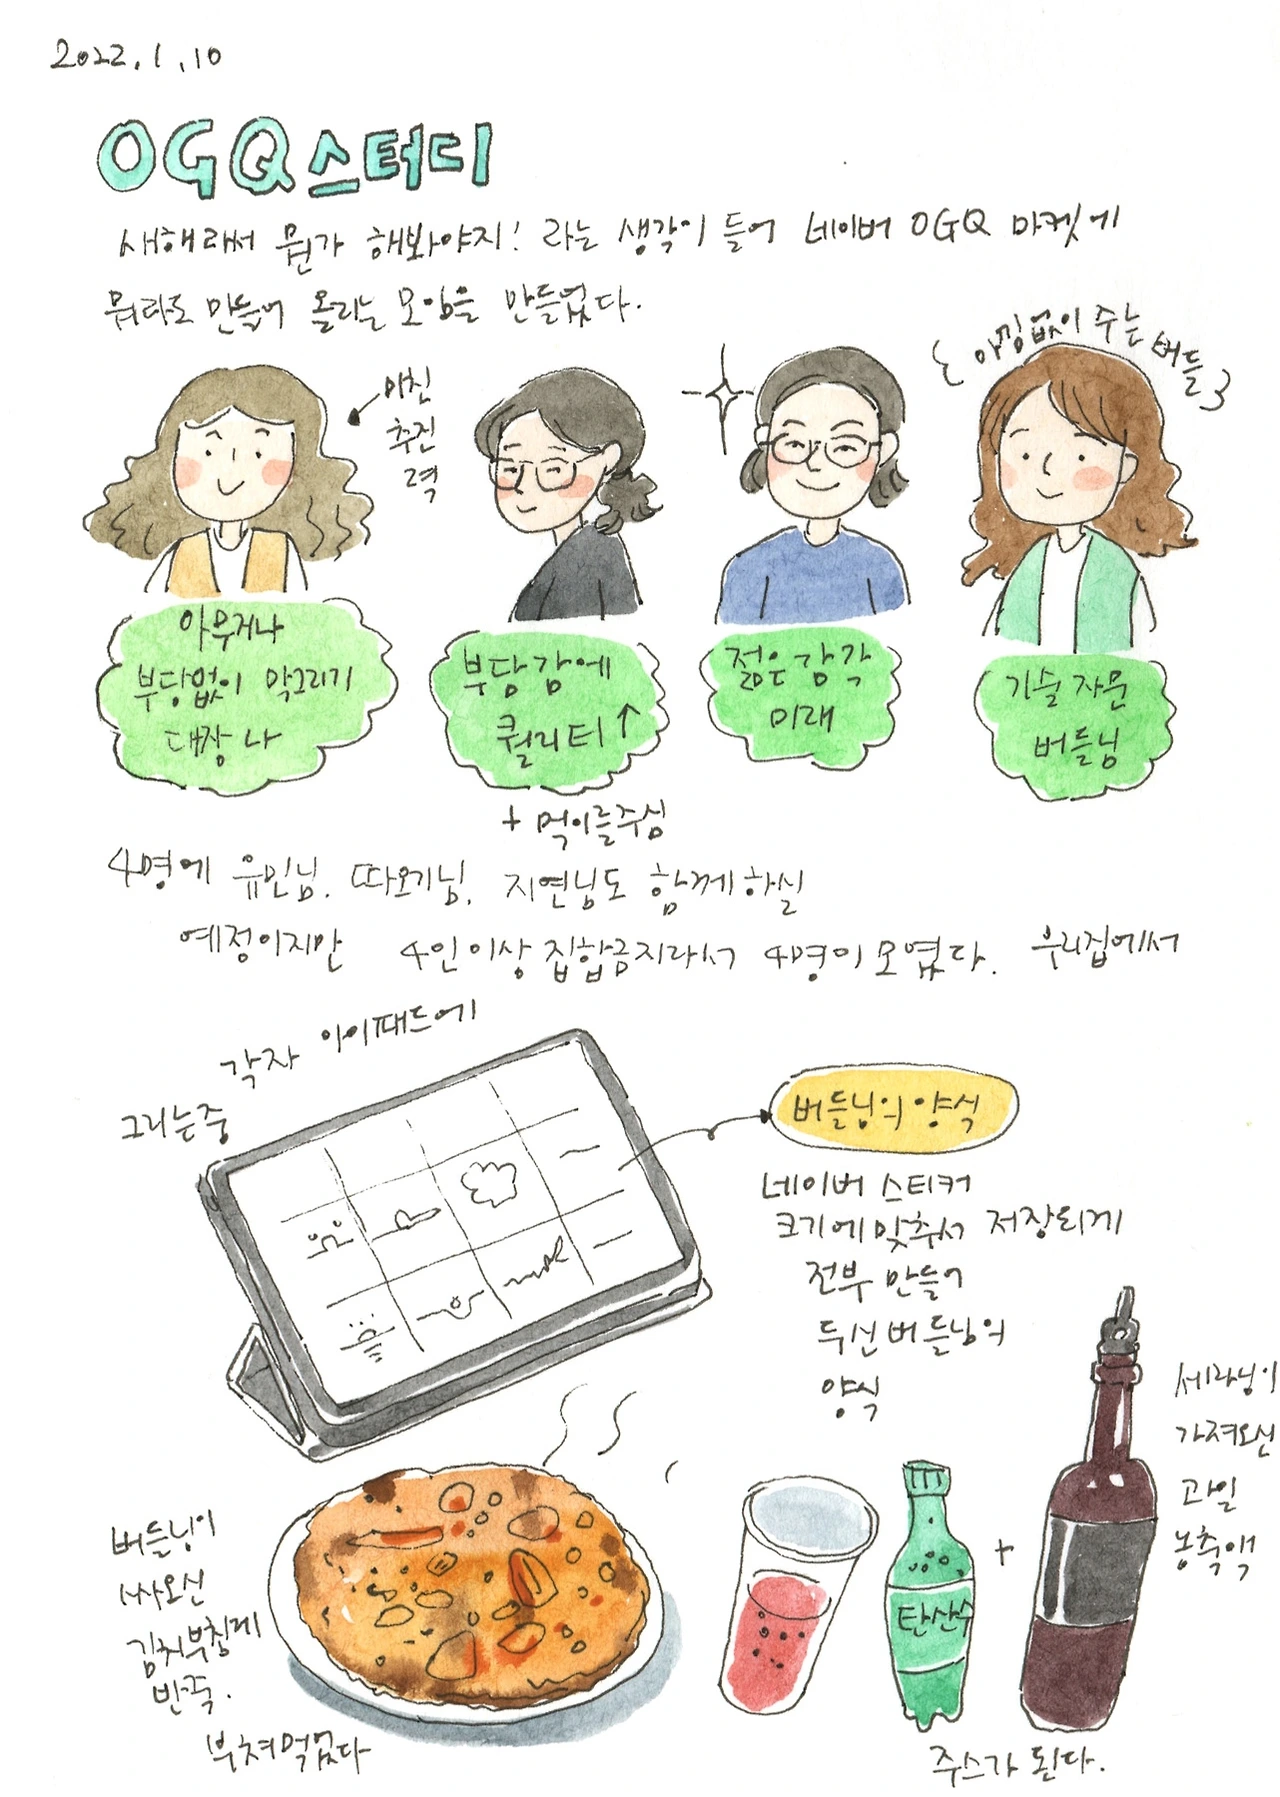 2022.1.10
OGQ스터디
새해라서 뭔가 해봐야지! 라는 생각이 들어 네이버 OGQ 마켓에
뭐라도 만들어 올리는 모임을 만들었다.
미친
추진
력
아낌없이 주는 버들
아무거나
부담없이 막그리기
대장 나
부담감에
퀄리티↑
+ 먹이를주심
젊은감각
미래
기술자문
버들님
4명에 유민님. 따오기님. 지연님도 함께하실
예정이지만 4인이상 집합금지라서 4명이 모였다. 우리집에서
각자 아이패드에
그리는중
버들님의 양식
네이버 스티커
크기에맞춰서 저장되게
전부 만들어
두신버들님의
양식
버들님이
싸오신
김치부침개
반죽.
부쳐먹었다
탄산수
+
세라님이
가져오신
과일
농축액
주스가 된다.